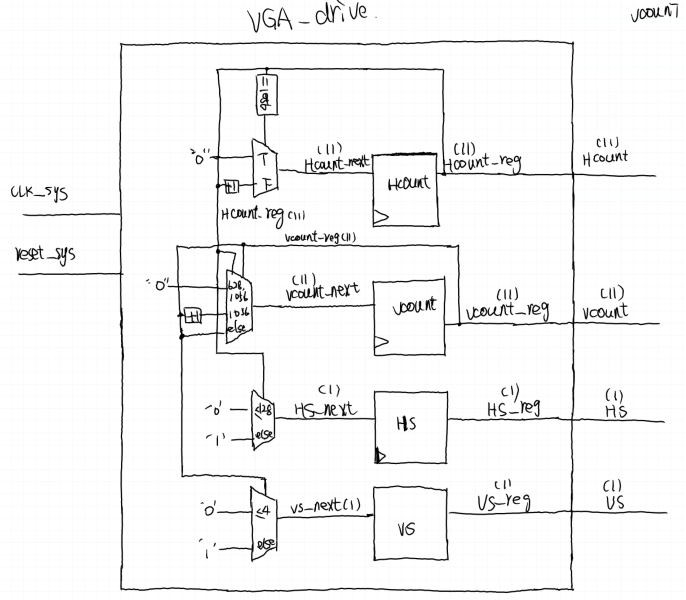 VGA_drive.
vcount
"0"
T
F
+1
(11)
Hcount_next
Hcount
(11)
Hcount_reg
(11)
Hcount
CLK_sys
Hcount_reg (11)
reset_sys
vcount-reg(11)
"0"
628,
1056
1056
else
+1
(11)
vcount_next
vcount
(11)
vcount_reg
(11)
vcount
'0'
'1'
≤128
else
(1)
HS_next
HS
(1)
HS_reg
(1)
HS
'0'
'1'
≤4
else
vs_next(1)
VS
(1)
VS_reg
(1)
VS